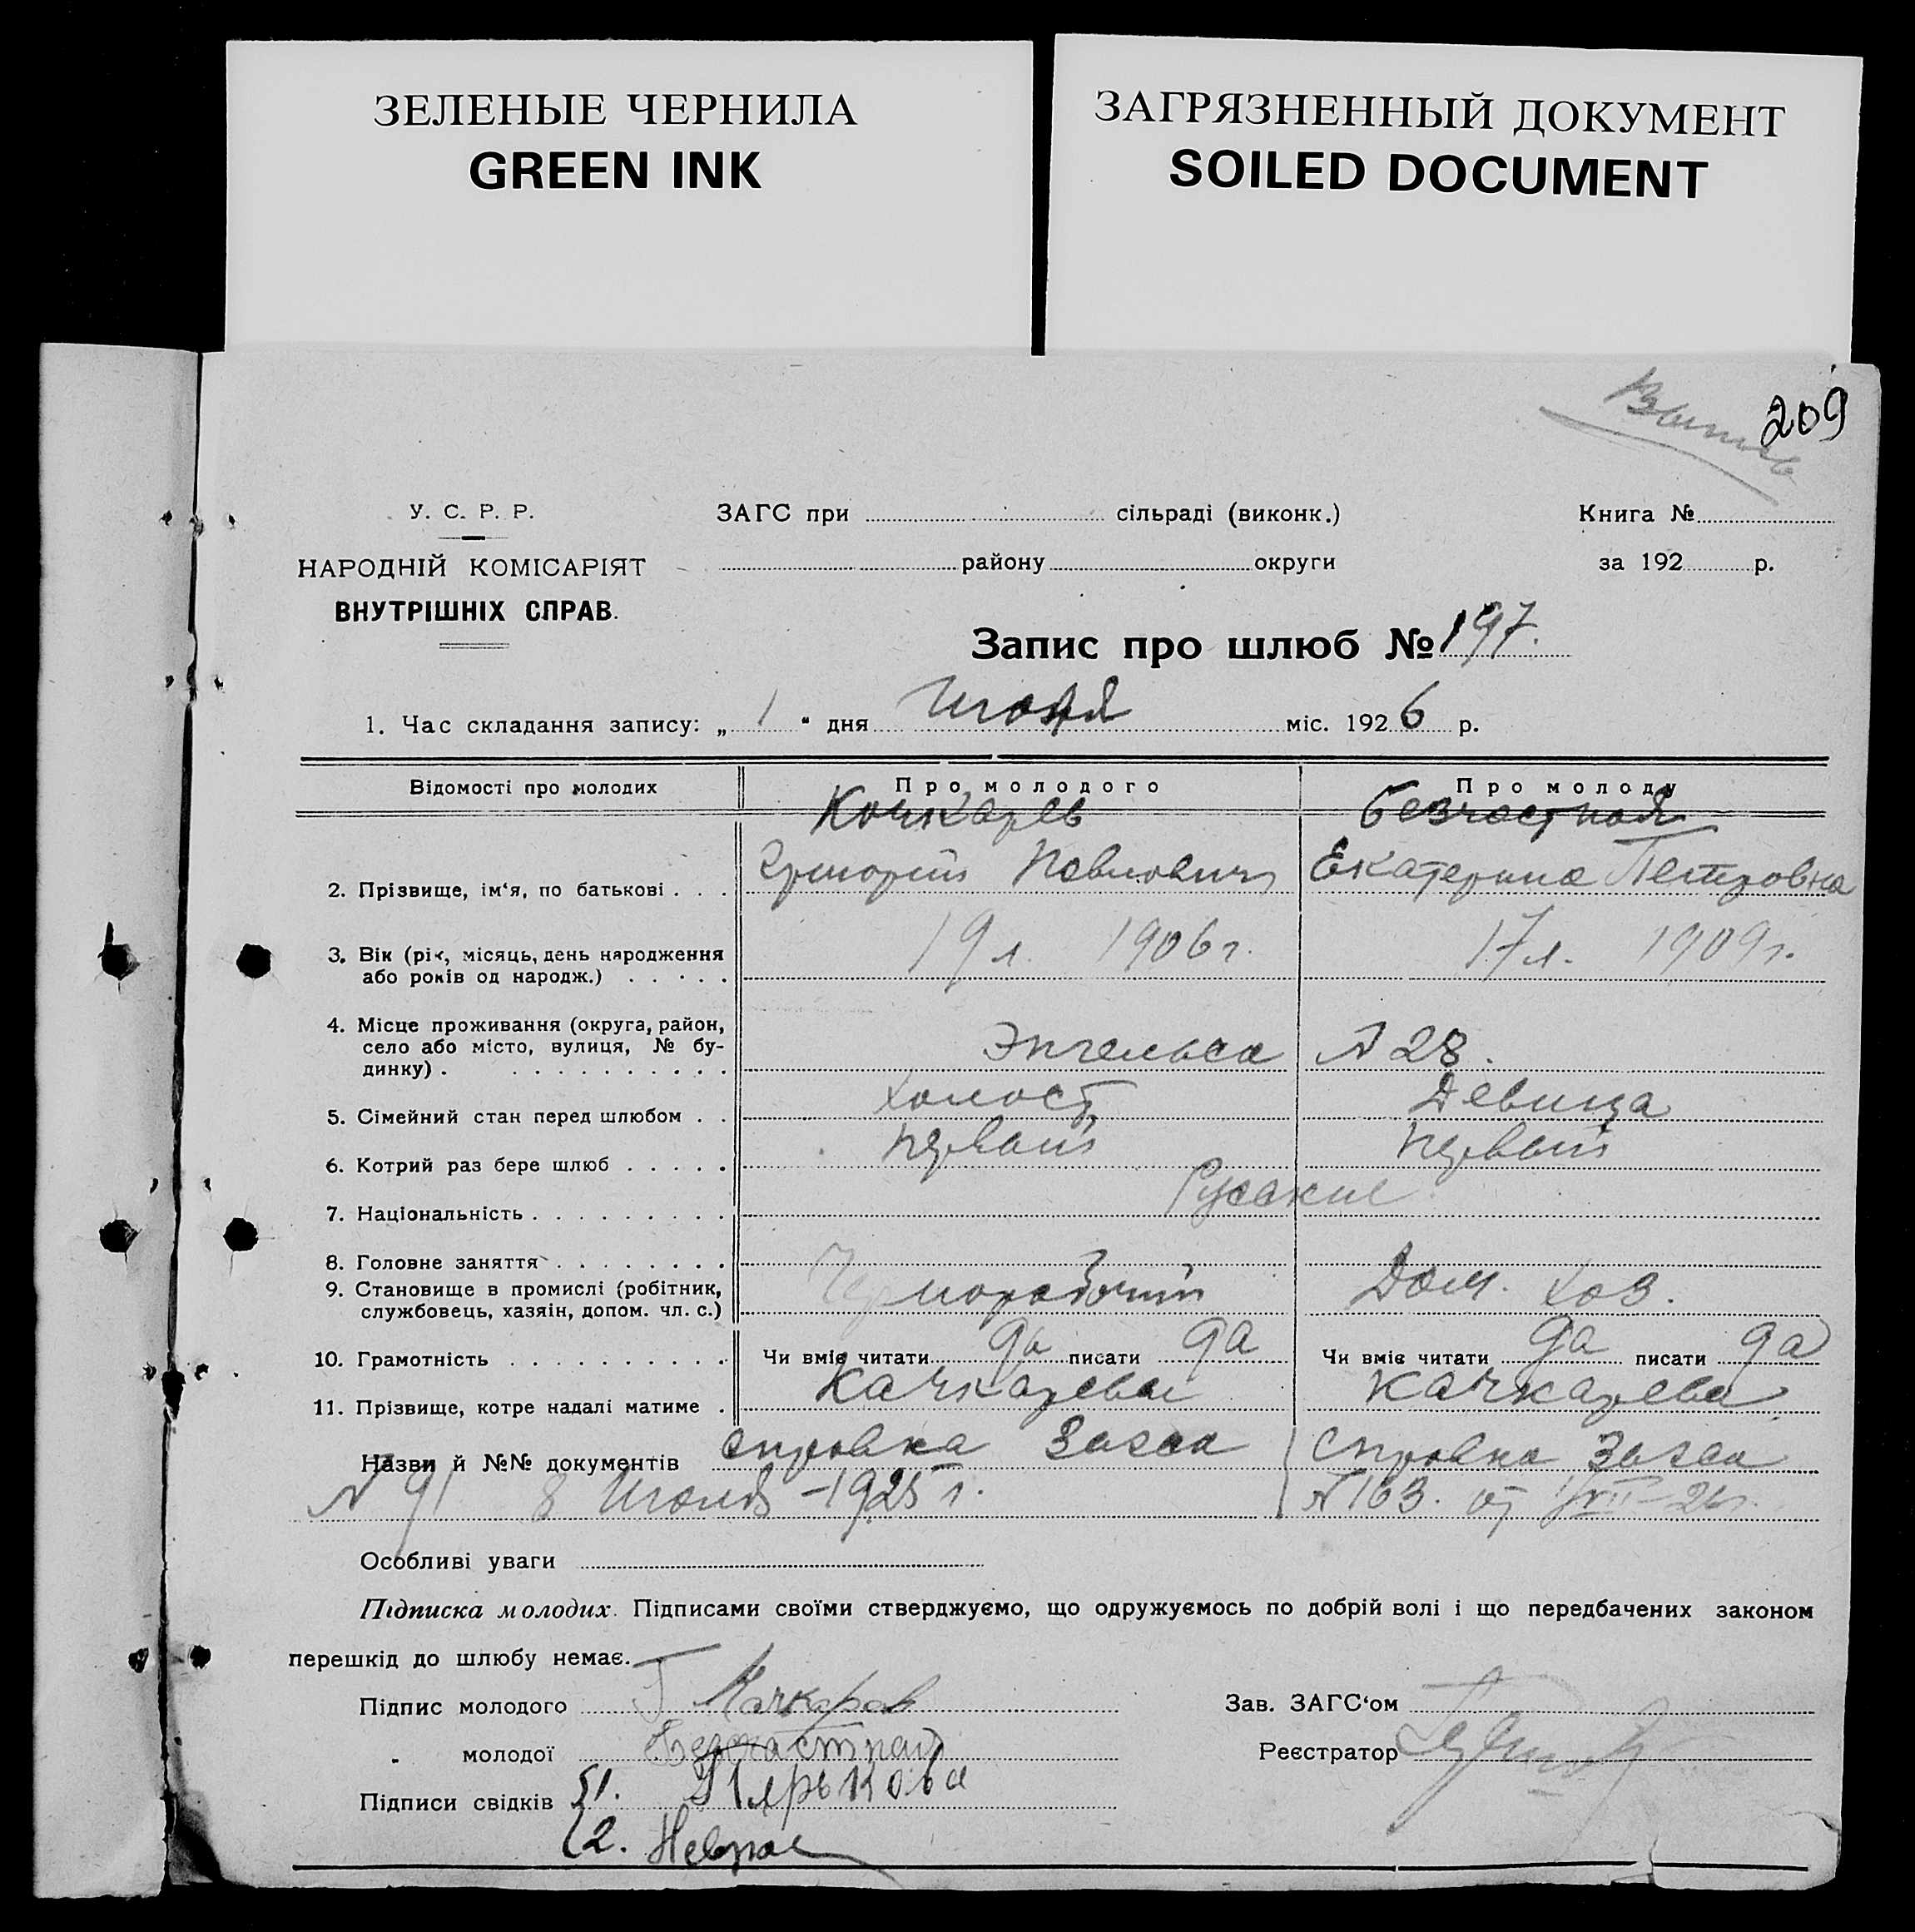 ЗЕЛЕНЫЕ ЧЕРНИЛА
GREEN INK
ЗАГРЯЗНЕННЫЙ ДОКУМЕНТ
SOILED DOCUMENT
209
У. С. Р. Р.
НАРОДНІЙ КОМІСАРІЯТ
ВНУТРІШНІХ СПРАВ.
ЗАГС при сільраді (виконк.)
району округи
Книга №
за 192 р.
Запис про шлюб № 197.
1. Час складання запису: „ 1 “ дня міс. 1926 р.
Відомості про молодих Про молодого Про молоду
Кочкарев Безчастная
2. Прізвище, ім‘я, по батькові . . . Григорий Павлович Екатерина Петровна
3. Вік (рік, місяць, день народження 19 л. 1906 г. 17 л. 1909 г.
або років од народж.) . . . . .
4. Місце проживання (округа, район,
село або місто, вулиця, № бу- Энгельса № 28.
динку) . . . . . . . . . . .
5. Сімейний стан перед шлюбом . . холост Девица
6. Котрий раз бере шлюб . . . . . первый первый
7. Національність . . . . . . . . . Русские
8. Головне заняття . . . . . . . .
9. Становище в промислі (робітник, Чернорабочий Дом. хоз.
службовець, хазяін, допом. чл. с.)
10. Грамотність . . . . . . . . . . Чи вміє читати да писати да Чи вміє читати да писати да
11. Прізвище, котре надалі матиме . Качкарева
Назви й №№ документів справка Загса Справка Загса
№ 91 8 Июля - 1925 г. № 163. от
Особливі уваги
Підписка молодих. Підписами своїми стверджуємо, що одружуємось по добрій волі і що передбачених законом
перешкід до шлюбу немає.
Підпис молодого Г Качкарев
„ молодої
Підписи свідків 1.
2.
Зав. ЗАГС‘ом
Реєстратор